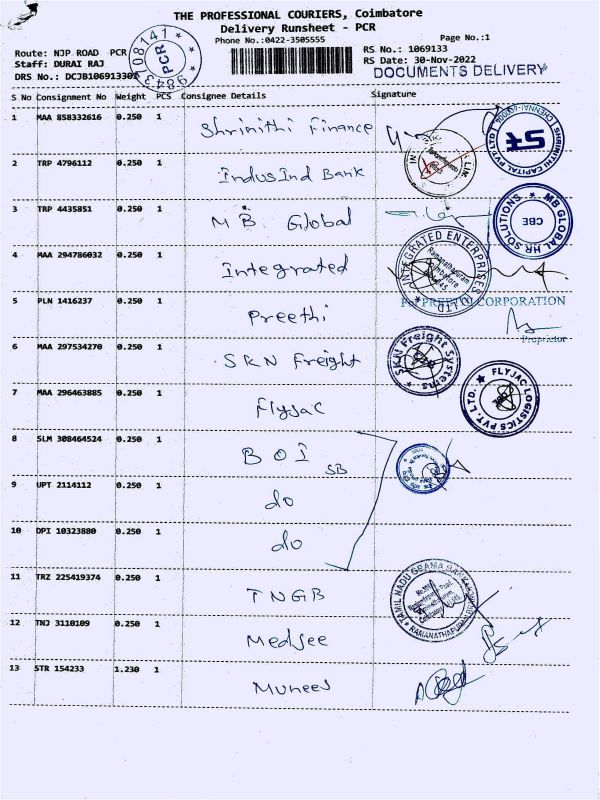 THE PROFESSIONAL COURIERS, Coimbatore
Delivery Runsheet - PCR
Phone No.:0422-3505555
Page No.:1
Route: NJP ROAD PCR
RS No.: 1069133
Staff: DURAI RAJ
RS Date: 30-Nov-2022
DRS No.: DCJB106913301
DOCUMENTS DELIVERY
PCR
S No Consignment No Weight PCS Consignee Details Signature
1 MAA 858332616 0.250 1 Shrinithi Finance
SHRINITHI CAPITAL PVT. LTD CHENNAI-600004
2 TRP 4796112 0.250 1 IndusInd Bank
3 TRP 4435851 0.250 1 M B Global
MB GLOBAL HR SOLUTIONS CBE
4 MAA 294786032 0.250 1 Integrated
INTEGRATED ENTERPRISES Ramanathapuram Coimbatore
5 PLN 1416237 0.250 1 Preethi
For PREETHI CORPORATION
Proprietor
6 MAA 297534270 0.250 1 SKN Freight
SKN Freight Systems
7 MAA 296463885 0.250 1 Flyjac
FLYJAC LOGISTICS PVT. LTD.
8 SLM 308464524 0.250 1 BOI SB
9 UPT 2114112 0.250 1 do
10 DPI 10323880 0.250 1 do
11 TRZ 225419374 0.250 1 TNGB
TAMIL NADU GRAMA BANK RAMANATHAPURAM
12 TNJ 3110109 0.250 1 Medsee
13 STR 154233 1.230 1 Munees